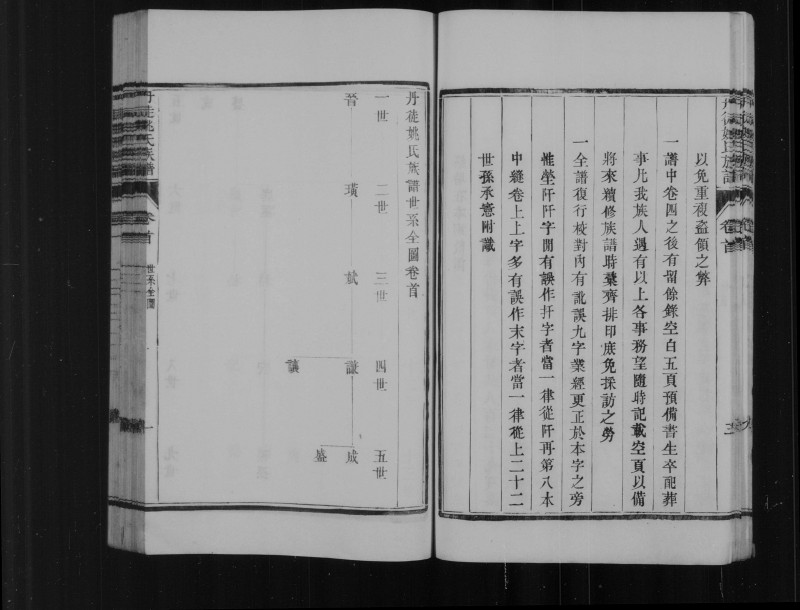 以免重複盜領之弊
一譜中卷四之後有留餘錄空白五頁預備書生卒配葬
事凡我族人遇有以上各事務望隨時記載空頁以備
將來續修族譜時彙齊排印庶免採訪之勞
一全譜復行校對內有訛誤九字業經更正於本字之旁
惟塋阡阡字閒有誤作扦字者當一律從阡再第八本
中縫卷上上字多有誤作末字者當一律從上二十二
世孫承憲附識
丹徒姚氏族譜
卷首
三
丹徒姚氏族譜世系全圖卷首
一世 二世 三世 四世 五世
晉 璜 弑 謙 成
讓
盛
丹徒姚氏族譜
卷首
世系全圖
一